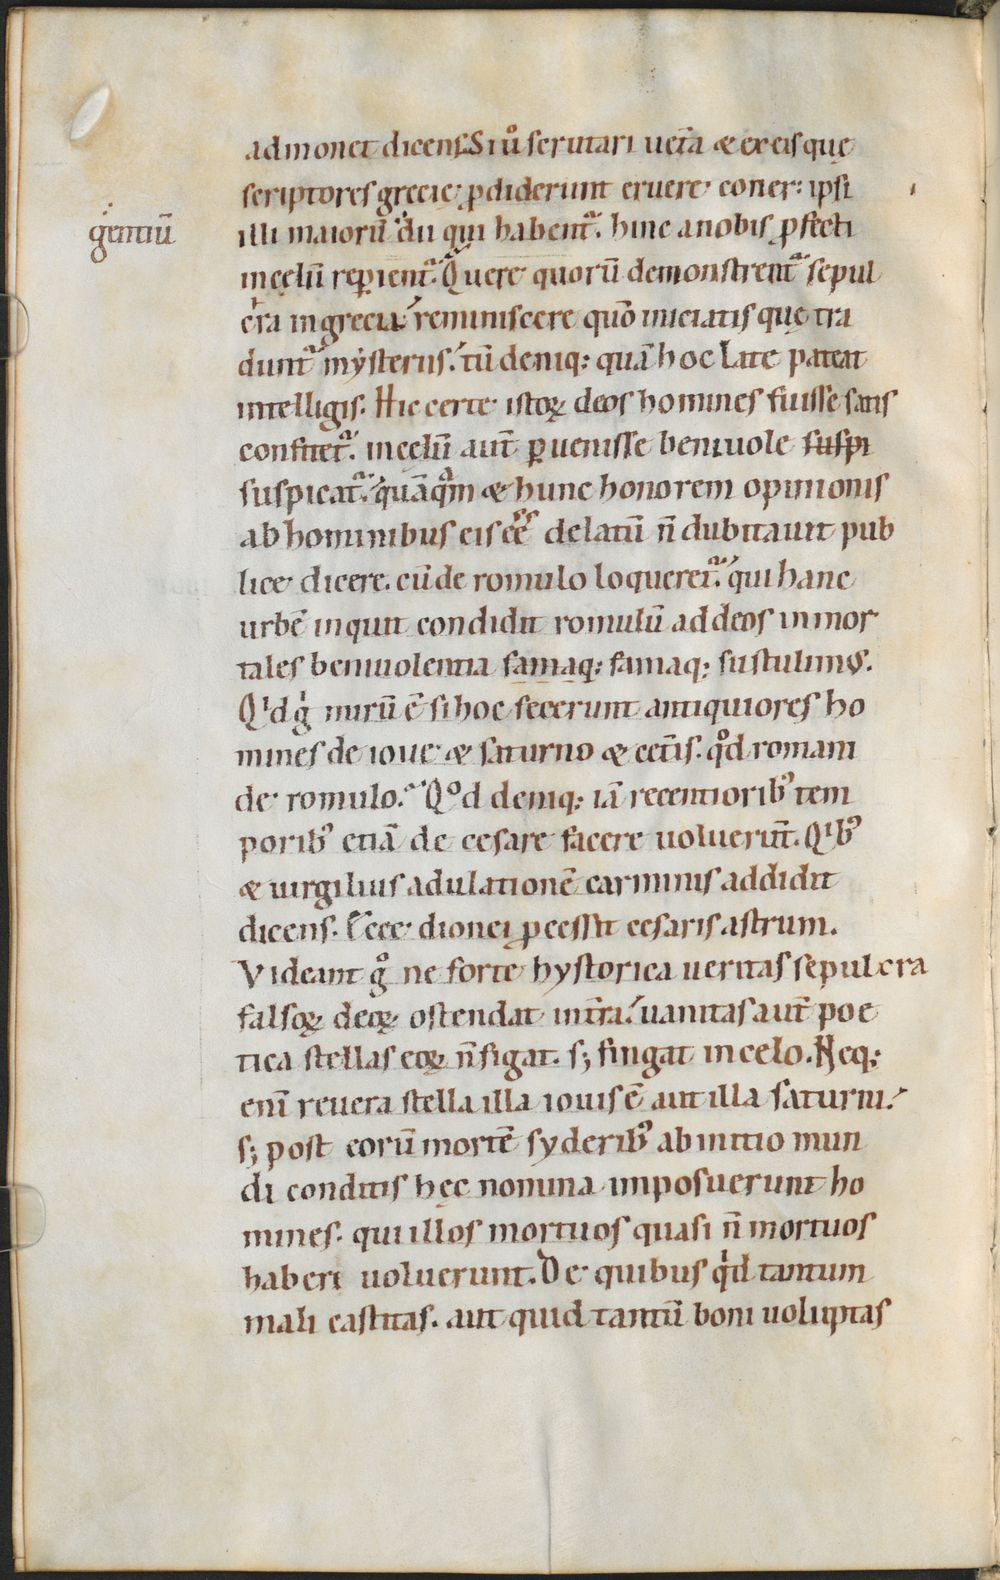 gentiū
admonet dicens. Si ů scrutari uet̄a & ex eis que
scriptores grecie ꝓdiderunt eruere coner: ipsi
illi maiorū dii qui habent᷑. hinc a nobis ꝓfecti
in cęlū reꝑient᷑. Quere quorū demonstrent᷑ sepul
cra in grecia. reminiscere quō iniciatis quę tra
dunt᷑ mẏsteriis. tū deniq; quā hoc late pateat
intelligis. Hic certe istoꝝ deos homines fuisse satis
confitet᷑. in cęlū aut̄ ꝑuenisse beniuole suspi
suspicat᷑. quāqm̄ & hunc honorem opinionis
ab hominibus eis ee͞ delatū n̄ dubitauit pub
lice dicere. cū de romulo loqueret᷑. qui hanc
urbē inquit condidit romulū ad deos inmor
tales beniuolentia famaq; famaq; sustulimꝰ.
Qͥd gͥ mirū ē si hoc fecerunt antiquiores ho
mines de ioue & saturno & cet̄is. qͦd romani
de romulo. Qͦd deniq; iā recentioribꝰ tem
poribꝰ etiā de cesare facere uoluerūt. Qͥbꝰ
& uirgilius adulationē carminis addidit
dicens. Ecce dionei ꝓcessit cesaris astrum.
Videant gͦ ne forte hystorica ueritas sepulcra
falsoꝝ deoꝝ ostendat in t̄ra. uanitas aut̄ poe
tica stellas eoꝝ n̄ figat. s; fingat in celo. Neq;
enī reuera stella illa iouis ē aut illa saturni.
s; post eorū mortē syderibꝰ ab initio mun
di conditis hęc nomina imposuerunt ho
mines. qui illos mortuos quasi n̄ mortuos
haberi uoluerunt. De quibus qͥd tantum
mali castitas. aut quid tantū boni uoluptas